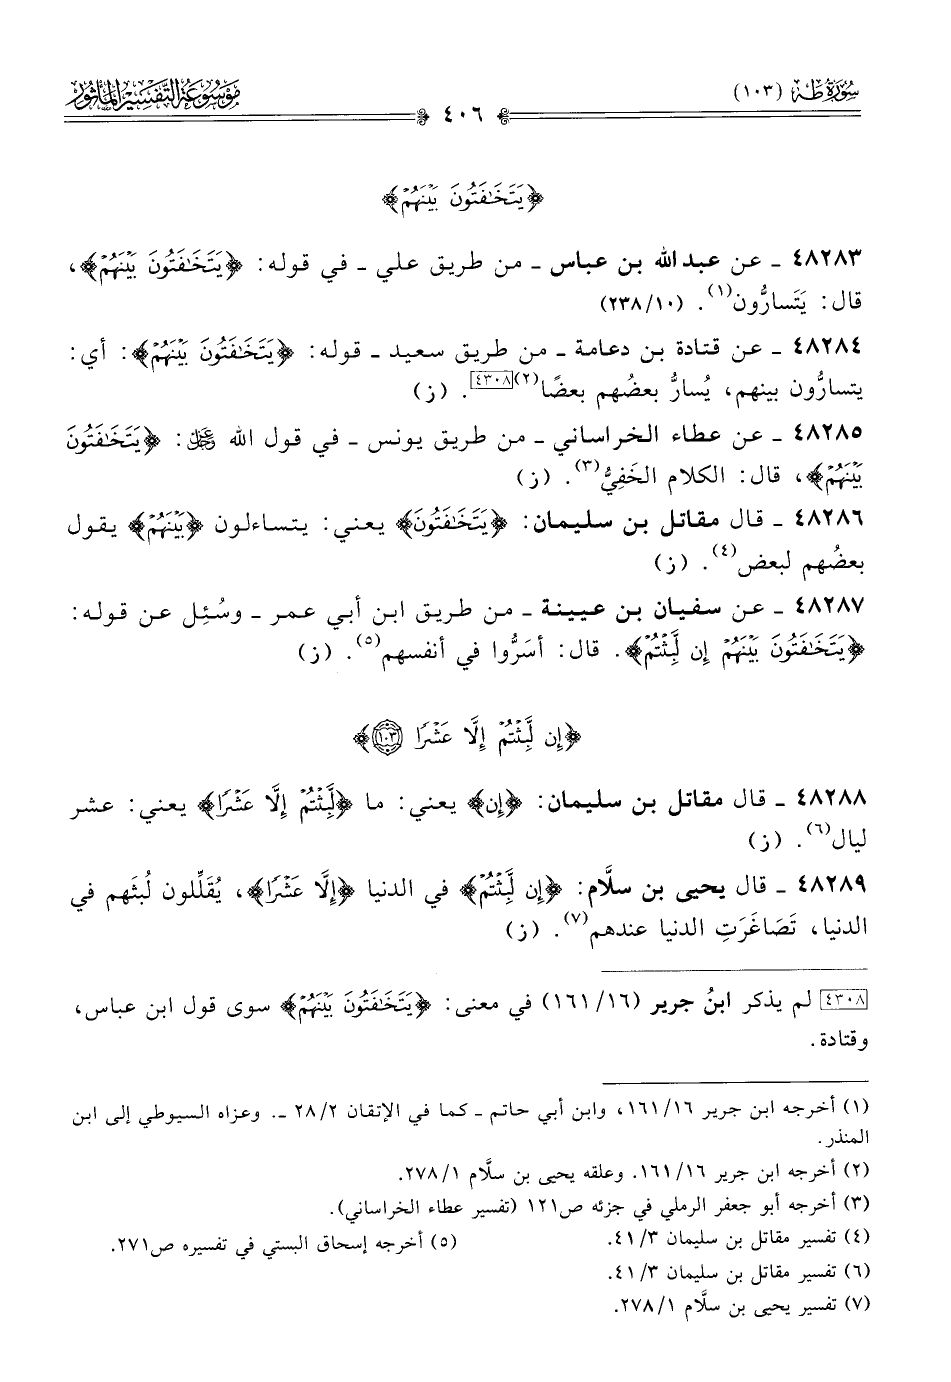 سُورَةُ طه (١٠٣)
مَوْسُوعَة التَّفْسِير المَأْثُور
٤٠٦
﴿يَتَخَٰفَتُونَ بَيْنَهُمْ﴾
٤٨٢٨٣ ـ عن عبد الله بن عباس ـ من طريق علي ـ في قوله: ﴿يَتَخَٰفَتُونَ بَيْنَهُمْ﴾،
قال: يَتَسارُّون(١). (٢٣٨/١٠)
٤٨٢٨٤ ـ عن قتادة بن دعامة ـ من طريق سعيد ـ قوله: ﴿يَتَخَٰفَتُونَ بَيْنَهُمْ﴾: أي:
يتسارُّون بينهم، يُسارُّ بعضُهم بعضًا(٢)[٤٣٠٨]. (ز)
٤٨٢٨٥ ـ عن عطاء الخراساني ـ من طريق يونس ـ في قول الله ﷿: ﴿يَتَخَٰفَتُونَ
بَيْنَهُمْ﴾، قال: الكلام الخَفِيُّ(٣). (ز)
٤٨٢٨٦ ـ قال مقاتل بن سليمان: ﴿يَتَخَٰفَتُونَ﴾ يعني: يتساءلون ﴿بَيْنَهُمْ﴾ يقول
بعضُهم لبعض(٤). (ز)
٤٨٢٨٧ ـ عن سفيان بن عيينة ـ من طريق ابن أبي عمر ـ وسُئِل عن قوله:
﴿يَتَخَٰفَتُونَ بَيْنَهُمْ إِن لَّبِثْتُمْ﴾. قال: أسَرُّوا في أنفسهم(٥). (ز)
﴿إِن لَّبِثْتُمْ إِلَّا عَشْرًا ١٠٣﴾
٤٨٢٨٨ ـ قال مقاتل بن سليمان: ﴿إِن﴾ يعني: ما ﴿لَّبِثْتُمْ إِلَّا عَشْرًا﴾ يعني: عشر
ليال(٦). (ز)
٤٨٢٨٩ ـ قال يحيى بن سلَّام: ﴿إِن لَّبِثْتُمْ﴾ في الدنيا ﴿إِلَّا عَشْرًا﴾، يُقَلِّلون لُبثَهم في
الدنيا، تَصَاغَرَتِ الدنيا عندهم(٧). (ز)
[٤٣٠٨] لم يذكر ابنُ جرير (١٦/ ١٦١) في معنى: ﴿يَتَخَٰفَتُونَ بَيْنَهُمْ﴾ سوى قول ابن عباس،
وقتادة.
(١) أخرجه ابن جرير ١٦/ ١٦١، وابن أبي حاتم ـ كما في الإتقان ٢/ ٢٨ ـ. وعزاه السيوطي إلى ابن
المنذر.
(٢) أخرجه ابن جرير ١٦/ ١٦١. وعلقه يحيى بن سلَّام ١/ ٢٧٨.
(٣) أخرجه أبو جعفر الرملي في جزئه ص١٢١ (تفسير عطاء الخراساني).
(٤) تفسير مقاتل بن سليمان ٣/ ٤١. (٥) أخرجه إسحاق البستي في تفسيره ص٢٧١.
(٦) تفسير مقاتل بن سليمان ٣/ ٤١.
(٧) تفسير يحيى بن سلَّام ١/ ٢٧٨.